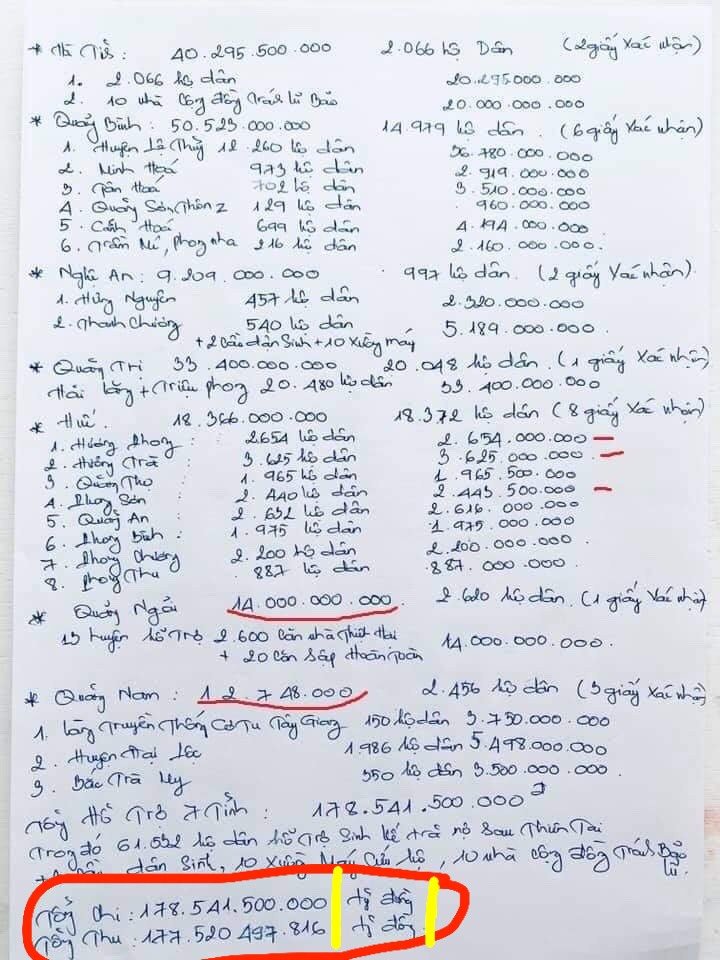 * Hà Tĩnh : 40.295.500.000 2.066 hộ Dân (2 giấy Xác nhận)
1. 2.066 hộ dân 20.295.000.000
2. 10 nhà Cộng đồng Tránh lũ Bão 20.000.000.000
* Quảng Bình : 50.523.000.000 14.979 hộ dân . (6 giấy Xác nhận)
1. Huyện Lệ Thủy 12.260 hộ dân 36.780.000.000
2. Minh Hoá 973 hộ dân 2.919.000.000
3. Tân Hoá 702 hộ dân 3.510.000.000
4. Quảng Sơn, Thôn 2 129 hộ dân .960.000.000
5. Cảnh Hoá 699 hộ dân 4.194.000.000
6. Trầm Mé, Phong nha 216 hộ dân 2.160.000.000.
* Nghệ An : 9.209.000.000 997 hộ dân. (2 giấy Xác nhận)
1. Hưng Nguyên 457 hộ dân 2.320.000.000
2. Thanh Chương 540 hộ dân 5.189.000.000.
+ 2 Cầu dân Sinh + 10 Xuồng máy
* Quảng Trị 33.400.000.000 20.048 hộ dân. (1 giấy Xác nhận)
Hải Lăng + Triệu phong 20.480 hộ dân 33.400.000.000
* Huế. 18.366.000.000 18.372 hộ dân (8 giấy Xác nhận)
1. Hương Phong : 2654 hộ dân 2.654.000.000
2. Hương Trà : 3.625 hộ dân 3.625.000.000
3. Quảng Thọ : 1.965 hộ dân 1.965.500.000
4. Phong Sơn : 2.440 hộ dân 2.443.500.000
5. Quảng An : 2.632 hộ dân 2.616.000.000
6. Phong Bình : 1.975 hộ dân 1.975.000.000
7. Phong Chương 2.200 hộ dân 2.200.000.000
8. Phong Thu 887 hộ dân 887.000.000
* Quảng Ngãi 14.000.000.000 2.620 hộ dân. (1 giấy Xác nhận)
13 huyện hỗ Trợ 2.600 Căn nhà Thiệt Hại 14.000.000.000.
+ 20 Căn Sập Hoàn Toàn
* Quảng Nam : 12.748.000 2.456 hộ dân (3 giấy Xác nhận)
1. Làng Truyền Thống Cơ Tu Tây Giang 150 hộ dân 3.750.000.000
2. Huyện Đại Lộc 1.986 hộ dân 5.498.000.000
3. Bắc Trà My 350 hộ dân 3.500.000.000
Tổng Hỗ Trợ 7 Tỉnh : 178.541.500.000
Trong đó 61.532 hộ dân hỗ Trợ Sinh kế trả nợ Sau Thiên Tai
dân Sinh, 10 Xuồng Máy Cứu hộ, 10 nhà Cộng đồng Tránh Bão lũ.
Tổng Chi : 178.541.500.000 tỷ đồng
Tổng Thu : 177.520.497.816 tỷ đồng